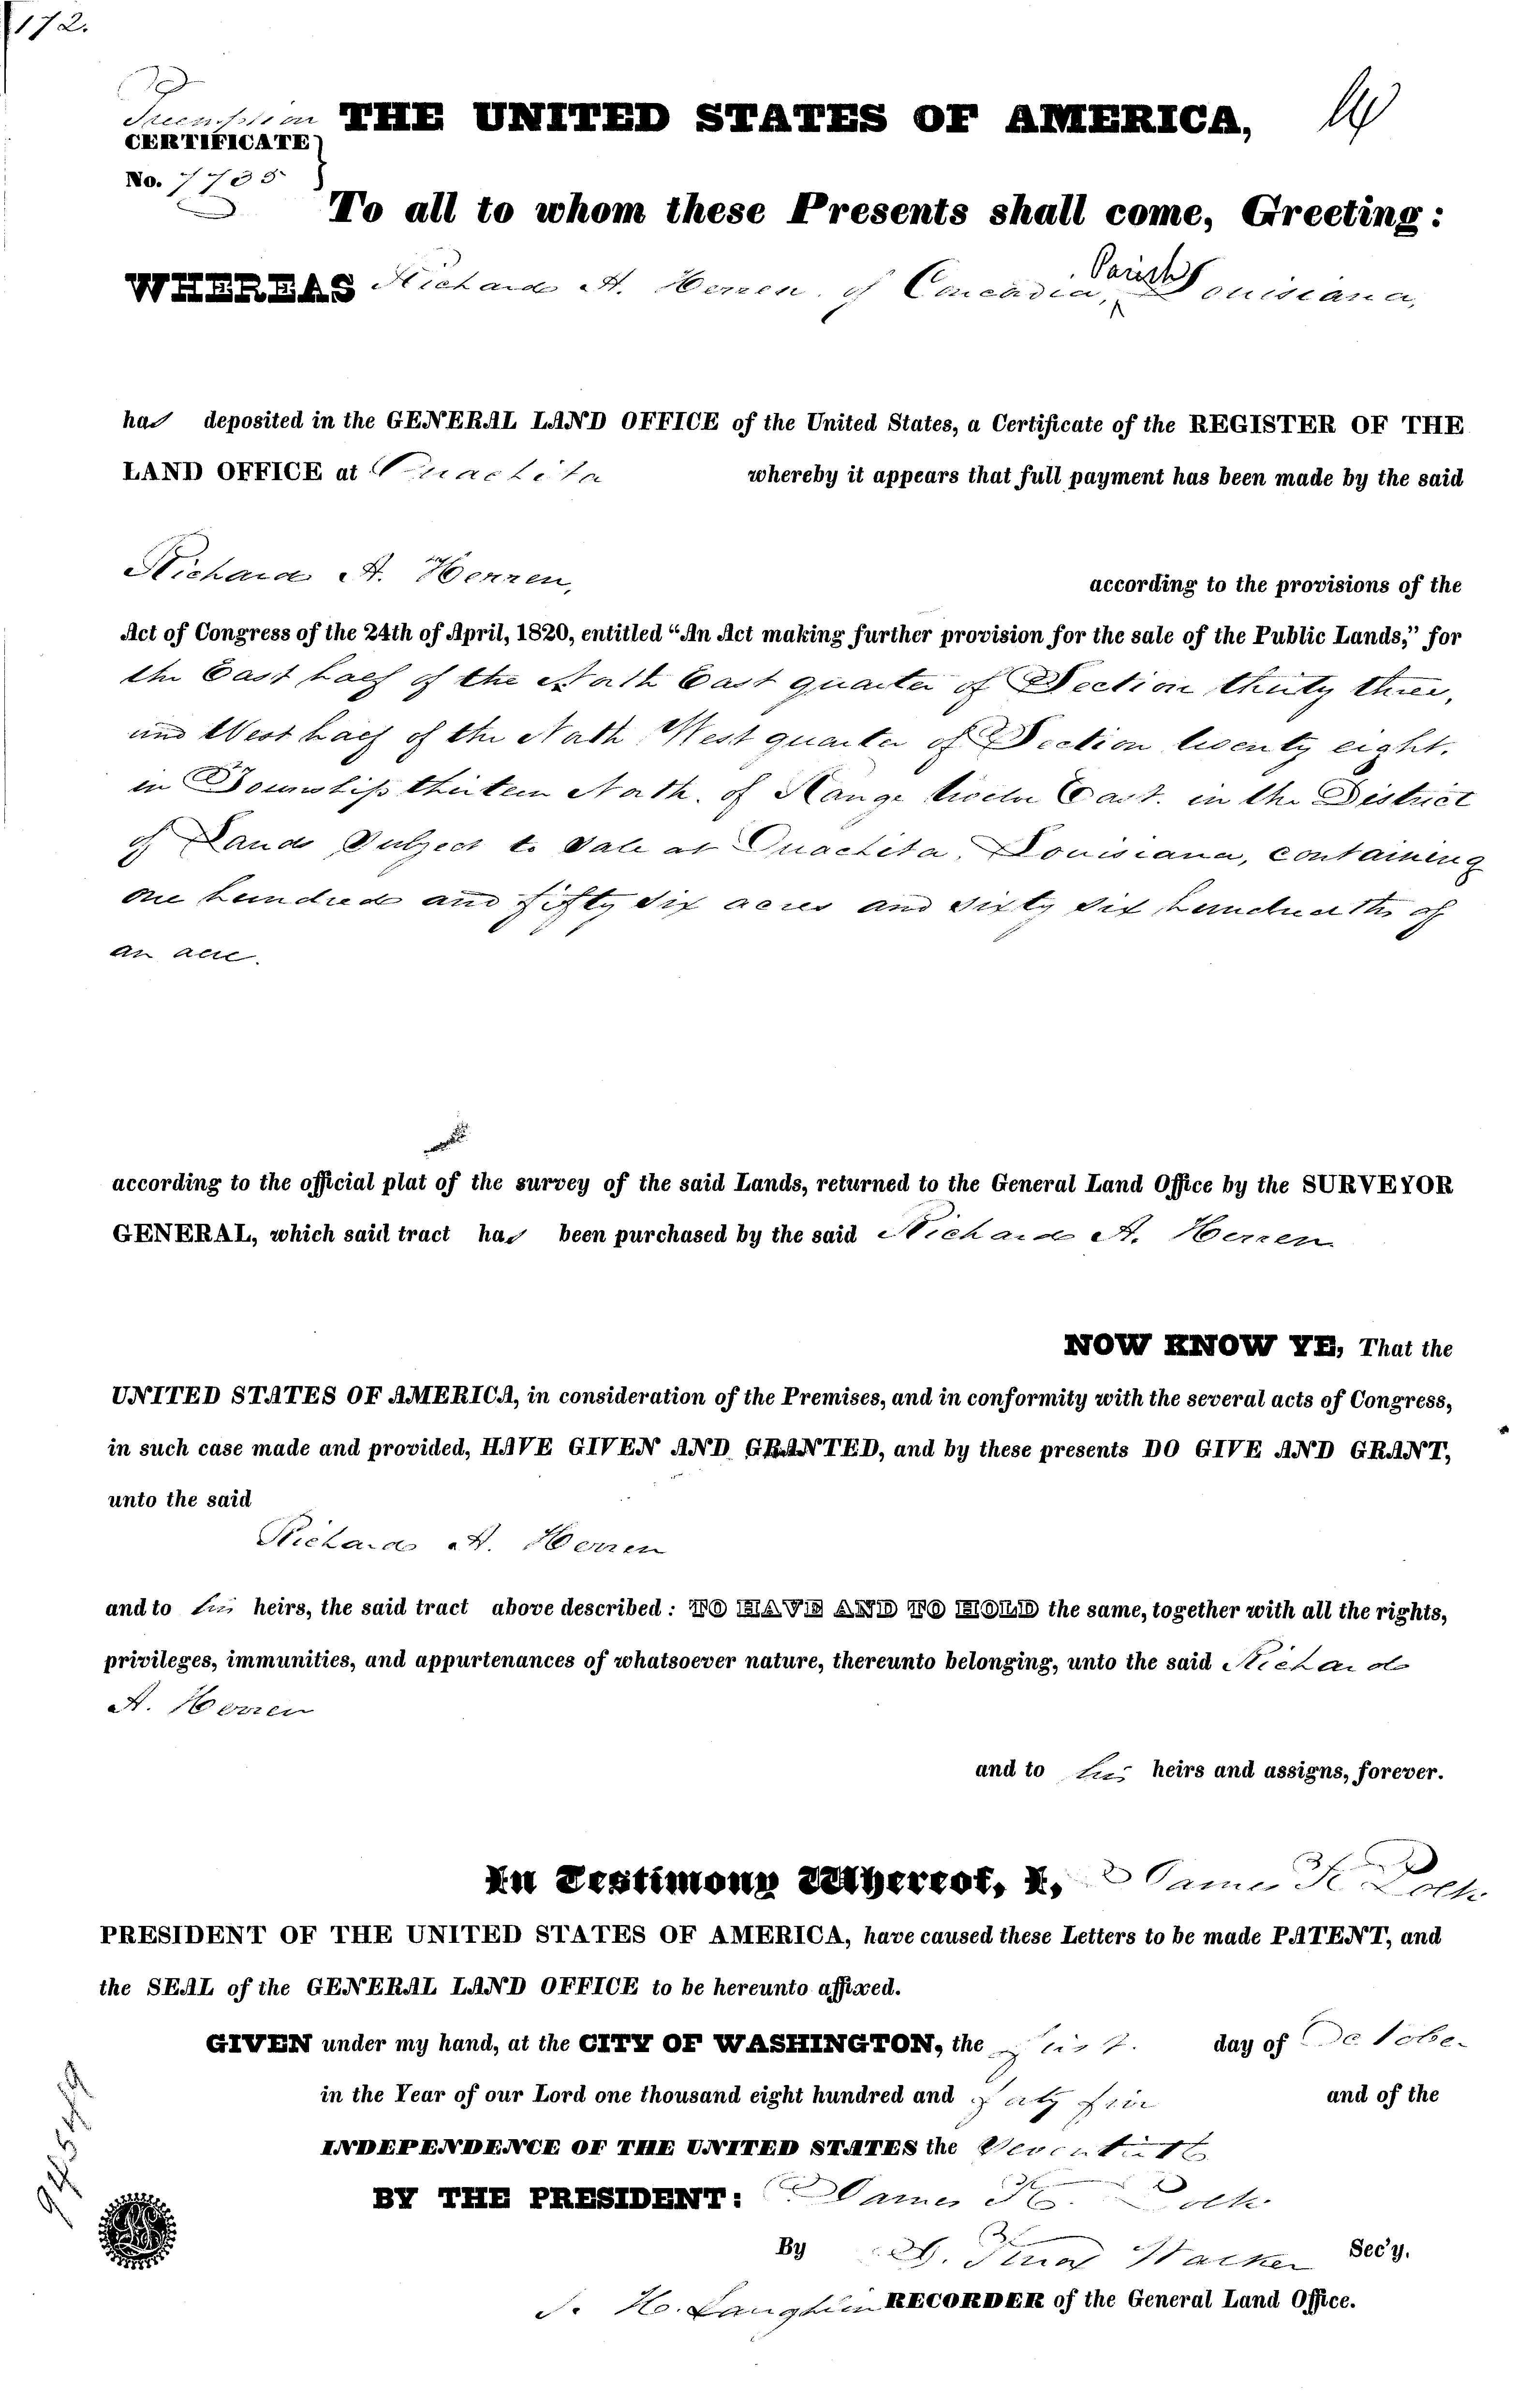 172.
Preemption
CERTIFICATE
No. 7735
THE UNITED STATES OF AMERICA,
To all to whom these Presents shall come, Greeting:
WHEREAS Richard A. Herren, of Concordia, Parish Louisiana,
has deposited in the GENERAL LAND OFFICE of the United States, a Certificate of the REGISTER OF THE
LAND OFFICE at Ouachita whereby it appears that full payment has been made by the said
Richard A. Herren, according to the provisions of the
Act of Congress of the 24th of April, 1820, entitled “An Act making further provision for the sale of the Public Lands,” for
the East half of the North East quarter of Section thirty three,
and West half of the North West quarter of Section twenty eight,
in Township thirteen North, of Range twelve East, in the District
of Lands Subject to Sale at Ouachita, Louisiana, containing
one hundred and fifty six acres and sixty six hundredths of
an acre.
according to the official plat of the survey of the said Lands, returned to the General Land Office by the SURVEYOR
GENERAL, which said tract has been purchased by the said Richard A. Herren
NOW KNOW YE, That the
UNITED STATES OF AMERICA, in consideration of the Premises, and in conformity with the several acts of Congress,
in such case made and provided, HAVE GIVEN AND GRANTED, and by these presents DO GIVE AND GRANT,
unto the said
Richard A. Herren
and to his heirs, the said tract above described: TO HAVE AND TO HOLD the same, together with all the rights,
privileges, immunities, and appurtenances of whatsoever nature, thereunto belonging, unto the said Richard
A. Herren
and to his heirs and assigns, forever.
In Testimony Whereof, I, James K. Polk
PRESIDENT OF THE UNITED STATES OF AMERICA, have caused these Letters to be made PATENT, and
the SEAL of the GENERAL LAND OFFICE to be hereunto affixed.
GIVEN under my hand, at the CITY OF WASHINGTON, the first day of October
in the Year of our Lord one thousand eight hundred and forty five and of the
INDEPENDENCE OF THE UNITED STATES the Seventieth
BY THE PRESIDENT: James K. Polk
By J. Knox Walker Sec'y.
S. H. Laughlin RECORDER of the General Land Office.
LS